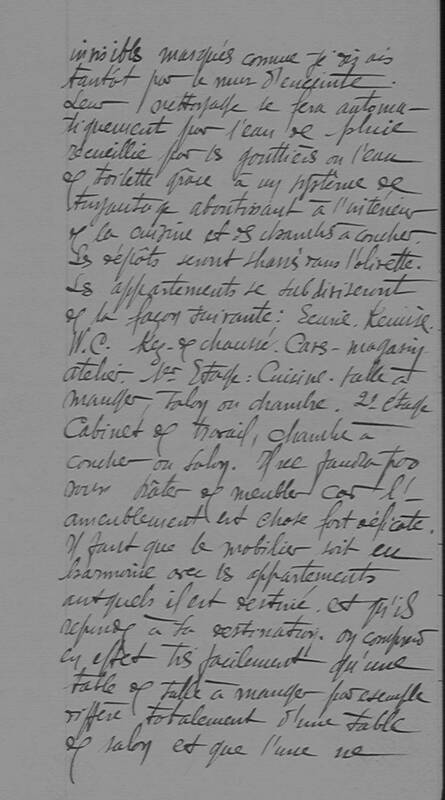 invisible marqués comme je dis ais
tantôt par le mur d'enceinte.
Leur nettoyage se fera automa-
tiquement par l'eau de pluie
recueillie par les gouttières ou l'eau
de toilette grâce à un système de
tuyautage aboutissant à l'intérieur
de la cuisine et des chambres à coucher.
Les dépôts seront dans l'olivette.
Les appartements se subdiviseront
de la façon suivante: Ecurie. Remise.
W.C. Rez-de chaussé. Cave-magasin
atelier. 1er Etage: Cuisine. salle à
manger, salon ou chambre. 2e étage
Cabinet de travail, chambre à
coucher ou salon. Il ne faudra pas
nous hâter de meubler car l'-
ameublement est chose fort délicate.
Il faut que le mobilier soit en
harmonie avec les appartements
auxquels il est destiné. et qu'il
réponde à sa destination. On comprend
en effet très facilement qu'une
table de salle à manger par exemple
diffère totalement d'une table
de salon et que l'une ne